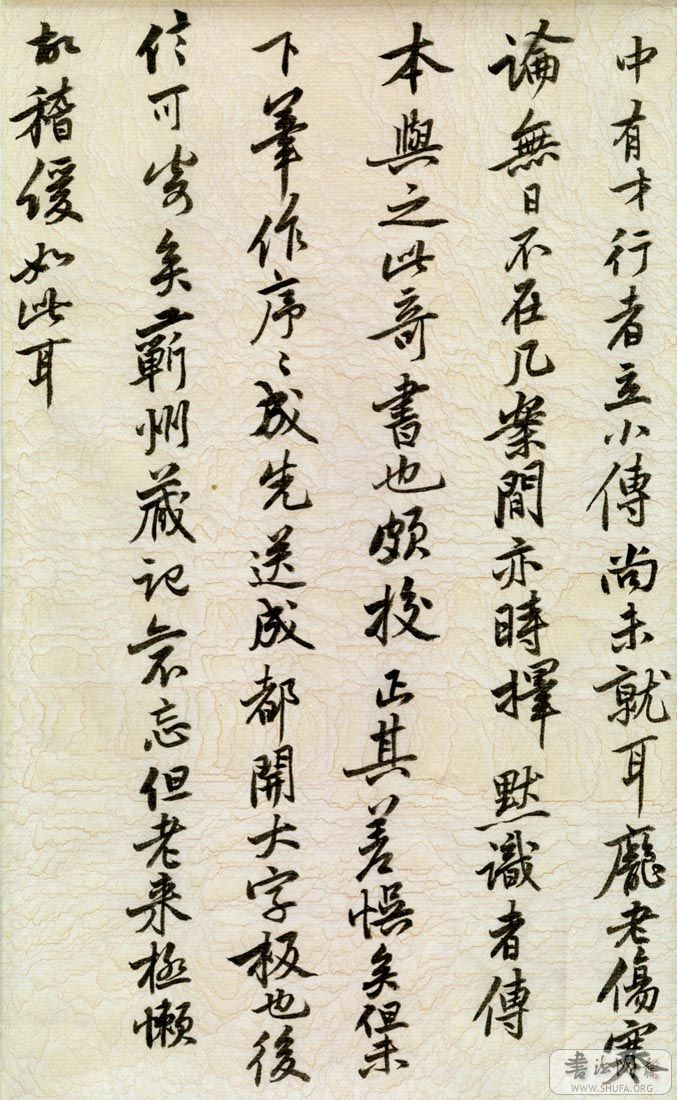 中有才行者立小傳尚未就耳龐老傷寒
論無日不在几案間亦時擇默識者傳
本與之此奇書也頗挍正其差悞矣但未
下筆作序〻成先送成都開大字板也後
信可寄矣蘄州藏記亦不忘但老来極懶
故稽緩如此耳
書法網
WWW.SHUFA.ORG